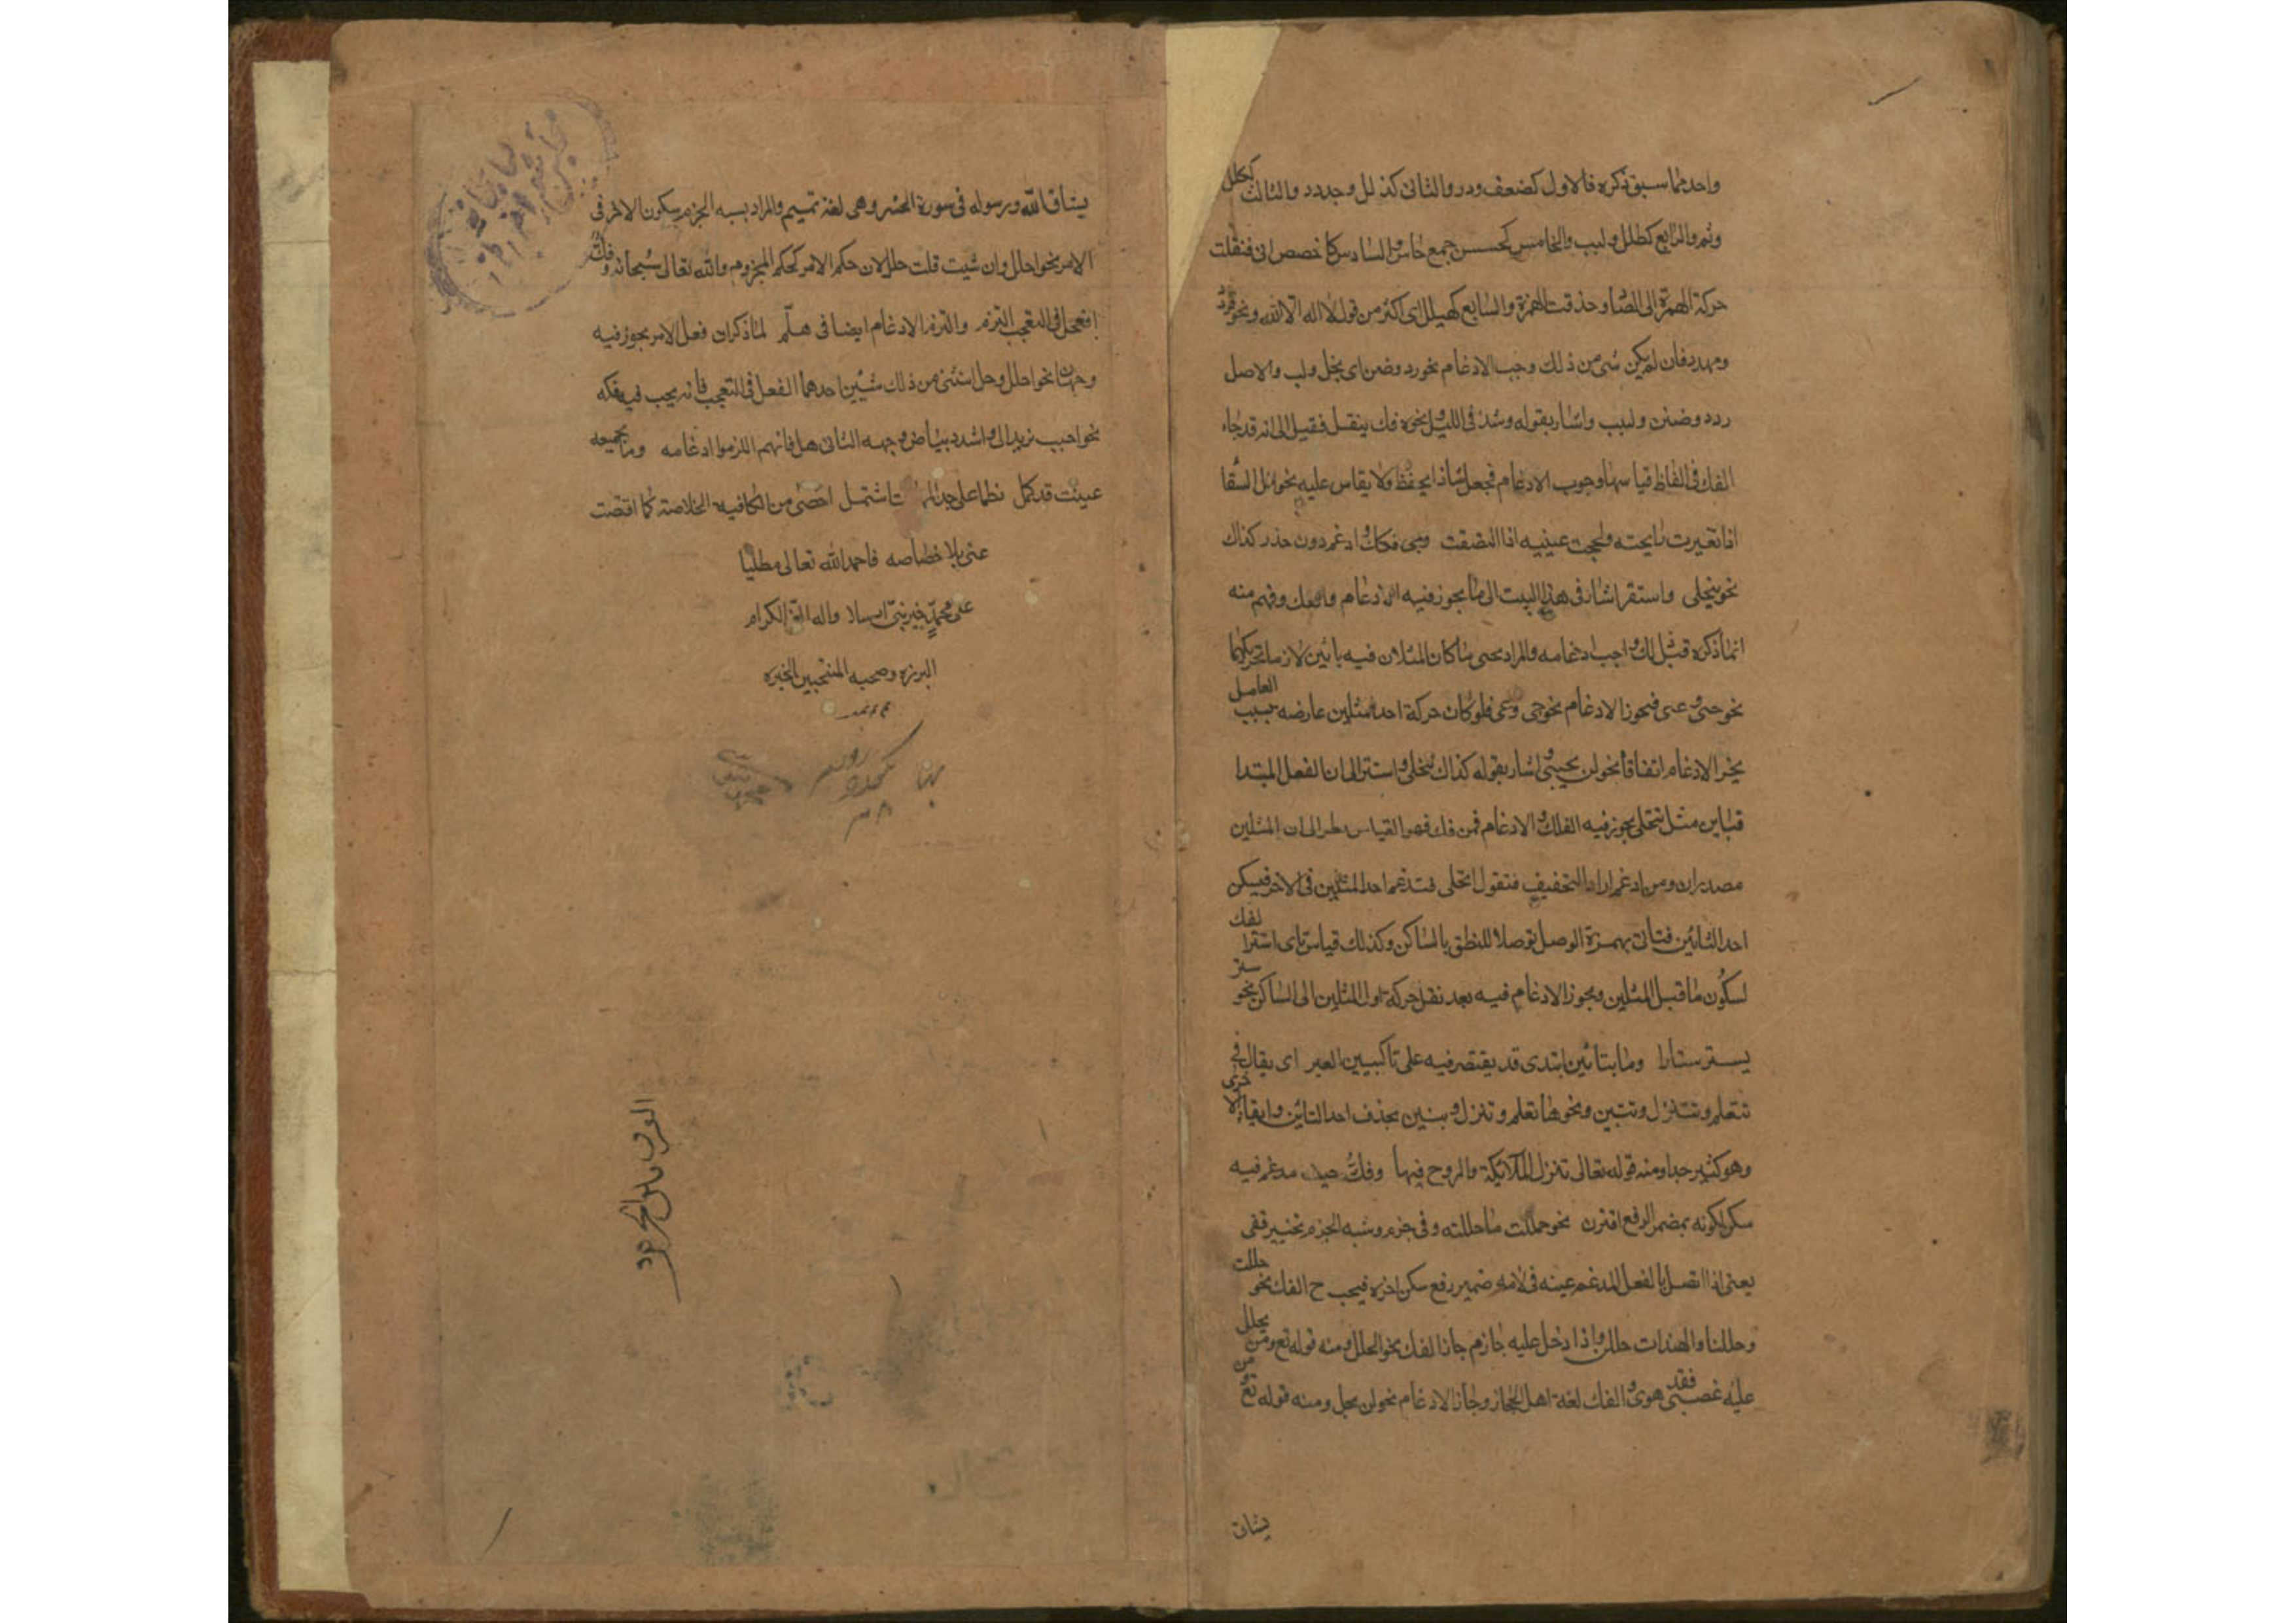 واحد مما سبق ذكره فالاول كضعف ودرر والثانى كذلل وجدد والثالث ككلل
ولمم والرابع كطلل ولبب والخامس كجسس جمع جاس والسادس كاخصص ابى فنقلت
حركة الهمزة الى الصاد وحذفت الهمزة والسابع كهيلل اى اكثر من قول لا اله الا الله ونحو قردد
ومهدد فان لم يكن شى من ذلك وجب الادغام نحو رد وضن اى بخل ولب والاصل
ردد وضنن ولبب واشار بقوله وشذ فى الل ونحوه فك بنقل فقبل الى انه قد جاء
الفك فى الفاظ قياسها وجوب الادغام فجعل شاذا يحفظ ولا يقاس عليه نحو الل السقا
اذا تغيرت رايحته ولححت عينه اذا التصقت وحيى افكك وادغم دون حذر كذاك
نحو تتجلى واستتر اشار فى هذا البيت الى ما يجوز فيه الادغام والفك وفهم منه
انما ذكره قبل ذلك واجب ادغامه والمراد بحيى ما كان المثلان فيه يائين لازما تحريكهما
نحو حيى وعيى فيجوز الادغام نحو حى وعى فلو كان حركة احد المثلين عارضه بسبب العامل
لم يجز الادغام اتفاقا نحو لن يحيى واشار بقوله كذاك تتجلى واستتر الى ان الفعل المبتدا
بتاين مثل تتجلى يجوز فيه الفك والادغام فمن فك فهو القياس نظر الى ان المثلين
مصدران ومن ادغم اراد التخفيف فتقول اتجلى فتدغم احد المثلين فى الاخر فيسكن
احد التائين فتاتى بهمزة الوصل توصلا للنطق بالساكن وكذلك قياس تاى استتر الفك
لسكون ما قبل المثلين ويجوز الادغام فيه بعد نقل حركة اول المثلين الى الساكن نحو ستر
يستر ستارا وما بتائين ابتدى قد يقتصر فيه على تا كتبين العبر اى يقال فى
تتعلم وتتنزل وتتبين ونحوها تعلم وتنزل وتبين بحذف احد التائين وابقاء الاخرى
وهو كثير جدا ومنه قوله تعالى تنزل الملائكة والروح فيها وفك حيث مدغم فيه
سكن لكونه بمضمر الرفع اقترن نحو حللت ما حللته وفى جزم وشبه الجزم تخيير قفى
يعنى اذا اتصل بالفعل المدغم عينه فى لامه ضمير رفع سكن اخره فيجب ح الفك نحو حللت
وحللنا والهندات حللن واذا دخل عليه جازم جاز الفك نحو لم يحلل ومنه قوله تع ومن يحلل
عليه غضبى فقد هوى والفك لغة اهل الحجاز وجاز الادغام نحو لن يحل ومنه قوله تع ومن
يشاق
يشاق الله ورسوله فى سورة الحشر وهى لغة تميم والمراد بشبه الجزم سكون الاخر فى
الامر نحو احلل وان شيت قلت حل لان حكم الامر كحكم المجزوم والله تعالى سبحانه وفك
افعل فى التعجب التزم والتزم الادغام ايضا فى هلم لما ذكر ان فعل الامر يجوز فيه
وجهان نحو احلل وحل استثنى من ذلك شيئين احدهما الفعل فى التعجب فانه يجب فيه فكه
نحو احبب بزيد الى واشدد ببياض وجهه الثانى هلم فانهم التزموا ادغامه وما بجمعه
عنيت قد كمل نظما على جل المهمات اشتمل احصى من الكافيه الخلاصة كما اقتضت
غنى بلا خصاصه فاحمد الله تعالى مصليا
على محمد خير نبى ارسلا واله الغر الكرام
البرره وصحبه المنتخبين الخيره